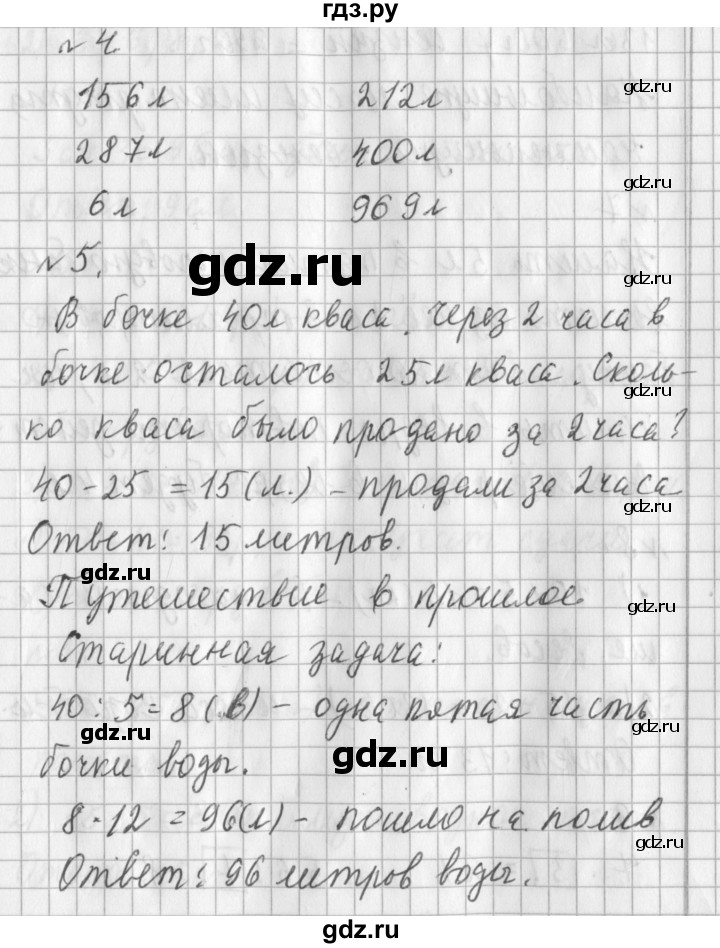 гдз.ру
№ 4.
156 л 212 л
gdz.ru
287 л 400 л
6 л 969 л
№ 5.
gdz.ru
gdz.ru
В бочке 40 л кваса. Через 2 часа в
бочке осталось 25 л кваса. Сколь-
gdz.ru
ко кваса было продано за 2 часа?
40 - 25 = 15 (л.) - продали за 2 часа
gdz.ru
Ответ: 15 литров.
gdz.ru
Путешествие в прошлое
gdz.ru
Старинная задача:
40 : 5 = 8 (в) - одна пятая часть
gdz.ru
бочки воды.
gdz.ru
8 · 12 = 96 (л) - пошло на полив
gdz.ru
Ответ: 96 литров воды.
gdz.ru
gdz.ru